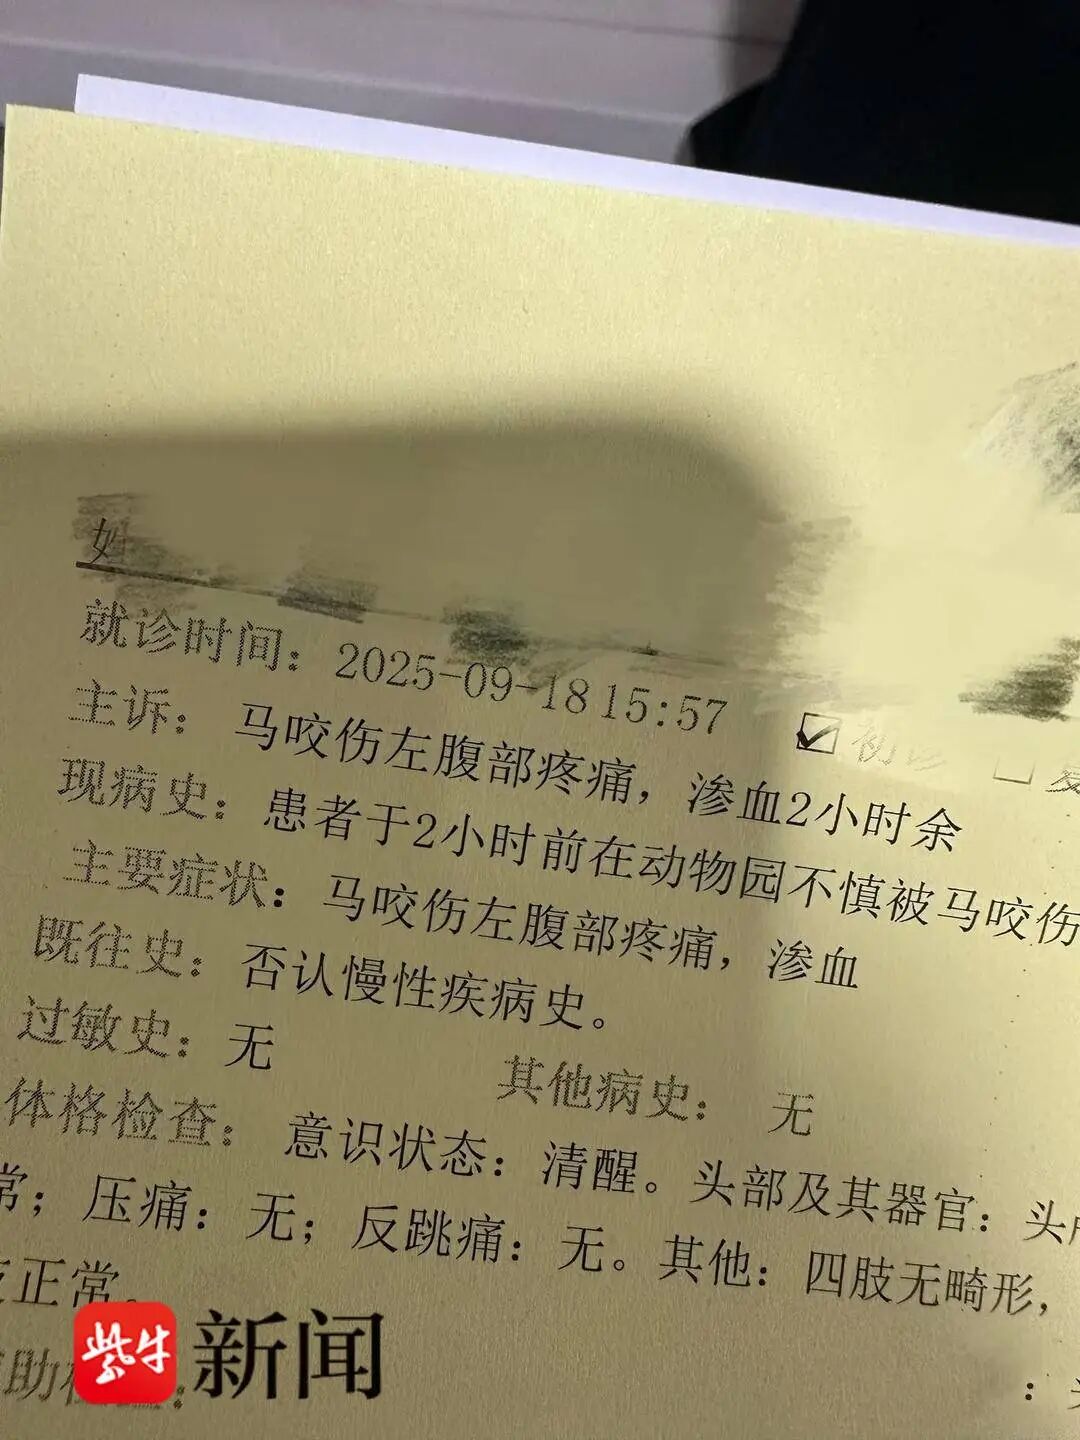 就诊时间：2025-09-18 15:57 初诊
主诉：马咬伤左腹部疼痛，渗血2小时余
现病史：患者于2小时前在动物园不慎被马咬伤
主要症状：马咬伤左腹部疼痛，渗血
既往史：否认慢性疾病史。
过敏史：无 其他病史：无
体格检查：意识状态：清醒。头部及其器官：头
常；压痛：无；反跳痛：无。其他：四肢无畸形，
正常。
助
紫牛新闻